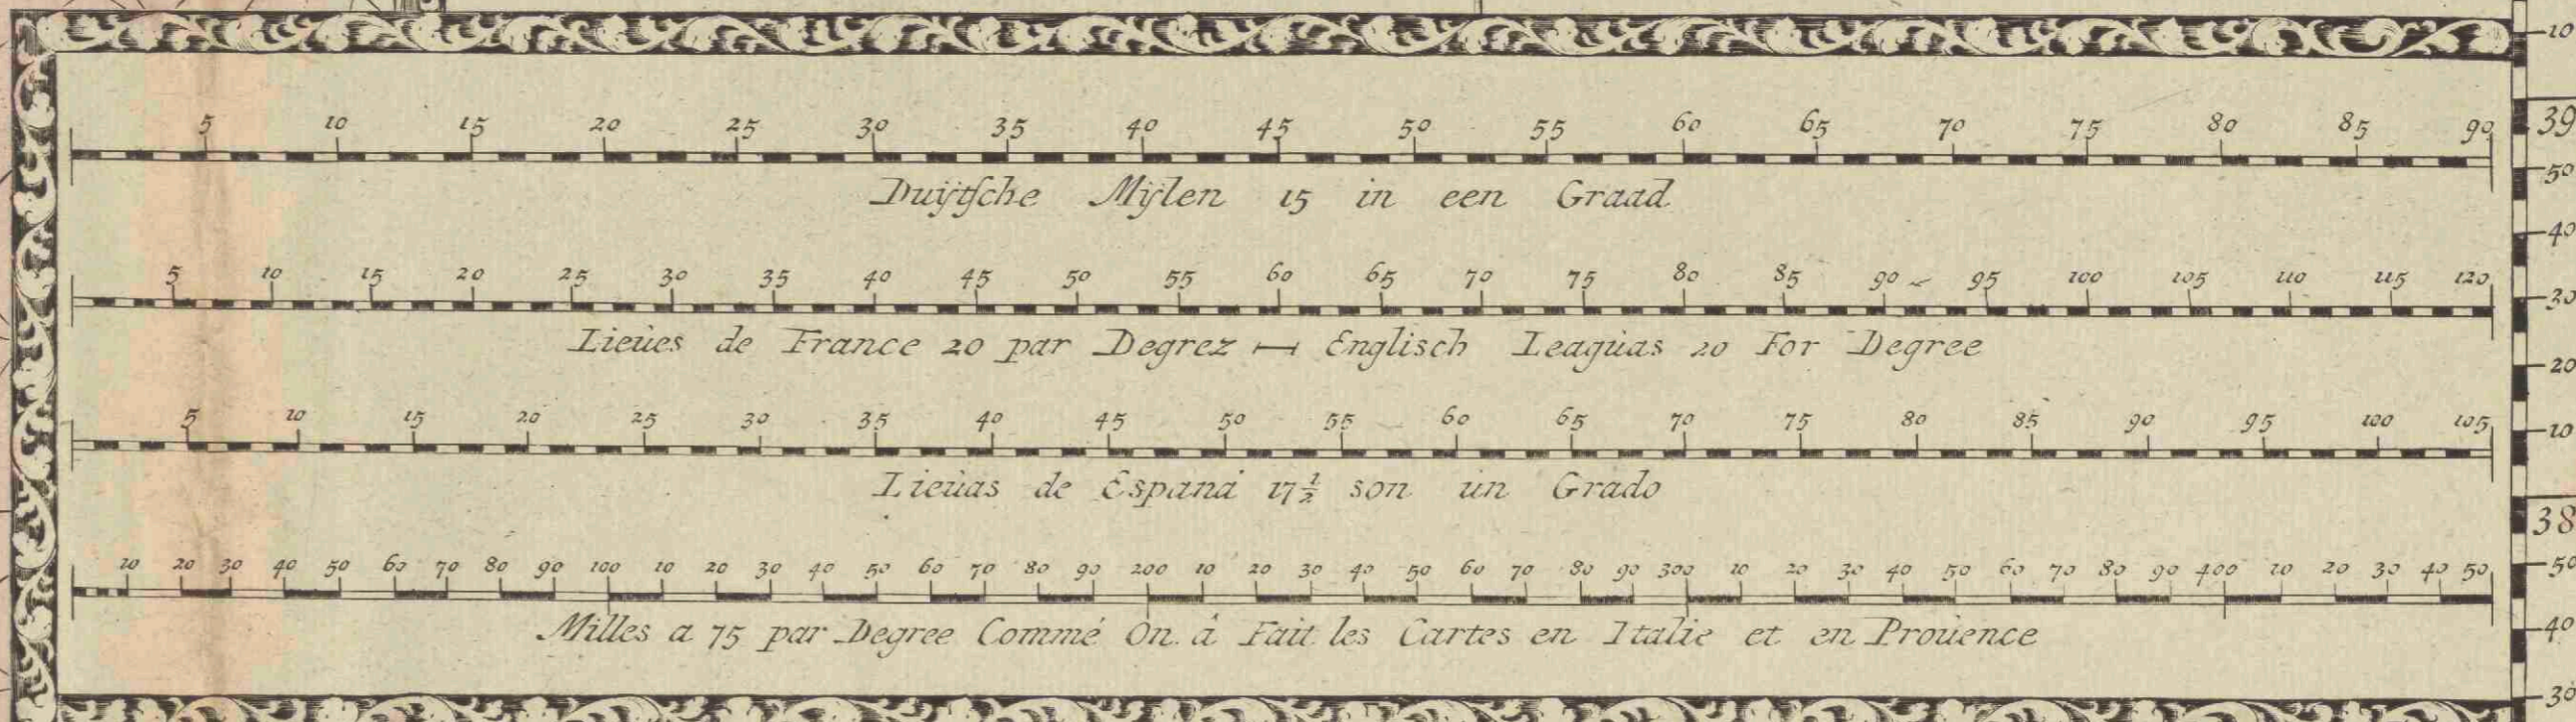 10
5 10 15 20 25 30 35 40 45 50 55 60 65 70 75 80 85 90
39
Duÿtsche Mÿlen 15 in een Graad
50
40
5 10 15 20 25 30 35 40 45 50 55 60 65 70 75 80 85 90 95 100 105 110 115 120
30
Lieùes de France 20 par Degrez Englisch Leagùas 20 For Degree
20
5 10 15 20 25 30 35 40 45 50 55 60 65 70 75 80 85 90 95 100 105
10
Lieùas de Espana 17 1/2 son un Grado
38
10 20 30 40 50 60 70 80 90 100 10 20 30 40 50 60 70 80 90 200 10 20 30 40 50 60 70 80 90 300 10 20 30 40 50 60 70 80 90 400 10 20 30 40 50
50
Milles a 75 par Degree Commé On â Fait les Cartes en Italie et en Proùence
40
30